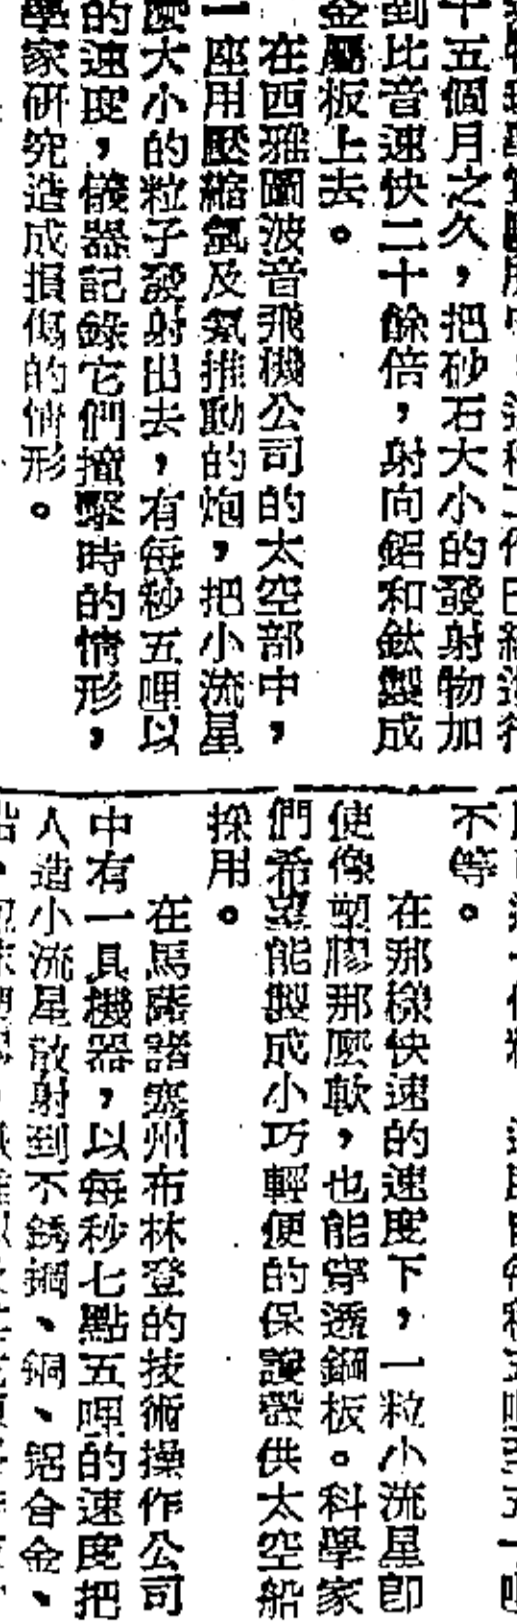 十五個月之久，把砂石大小的發射物加
到比音速快二十餘倍，射向鋁和鈦製成
金屬板上去。
在西雅圖波音飛機公司的太空部中，
一座用壓縮氫及氦推動的炮，把小流星
麼大小的粒子發射出去，有每秒五哩以
的速度，儀器記錄它們撞擊時的情形，
學家研究造成損傷的情形。
不等。
在那樣快速的速度下，一粒小流星卽
使像塑膠那麼軟，也能穿透鋼板。科學家
們希望能製成小巧輕便的保護器供太空船
採用。
在馬薩諸塞州布林登的技術操作公司
中有一具機器，以每秒七點五哩的速度把
人造小流星散射到不銹鋼、銅、鋁合金、